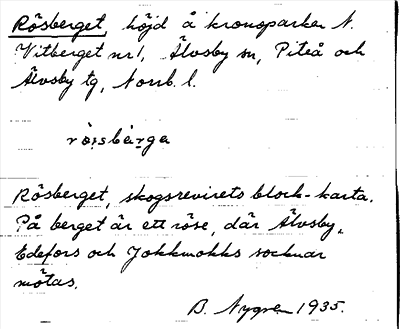 Rösberget, höjd å kronoparken N.
Vitberget nr 1, Älvsby sn, Piteå och
Älvsby tg, Norrb. l.
rö̀ṣbærga
Rösberget, skogsrevirets block-karta.
På berget är ett röse, där Älvsby,
Edefors och Jokkmokks socknar
mötas.
B. Nygren 1935.